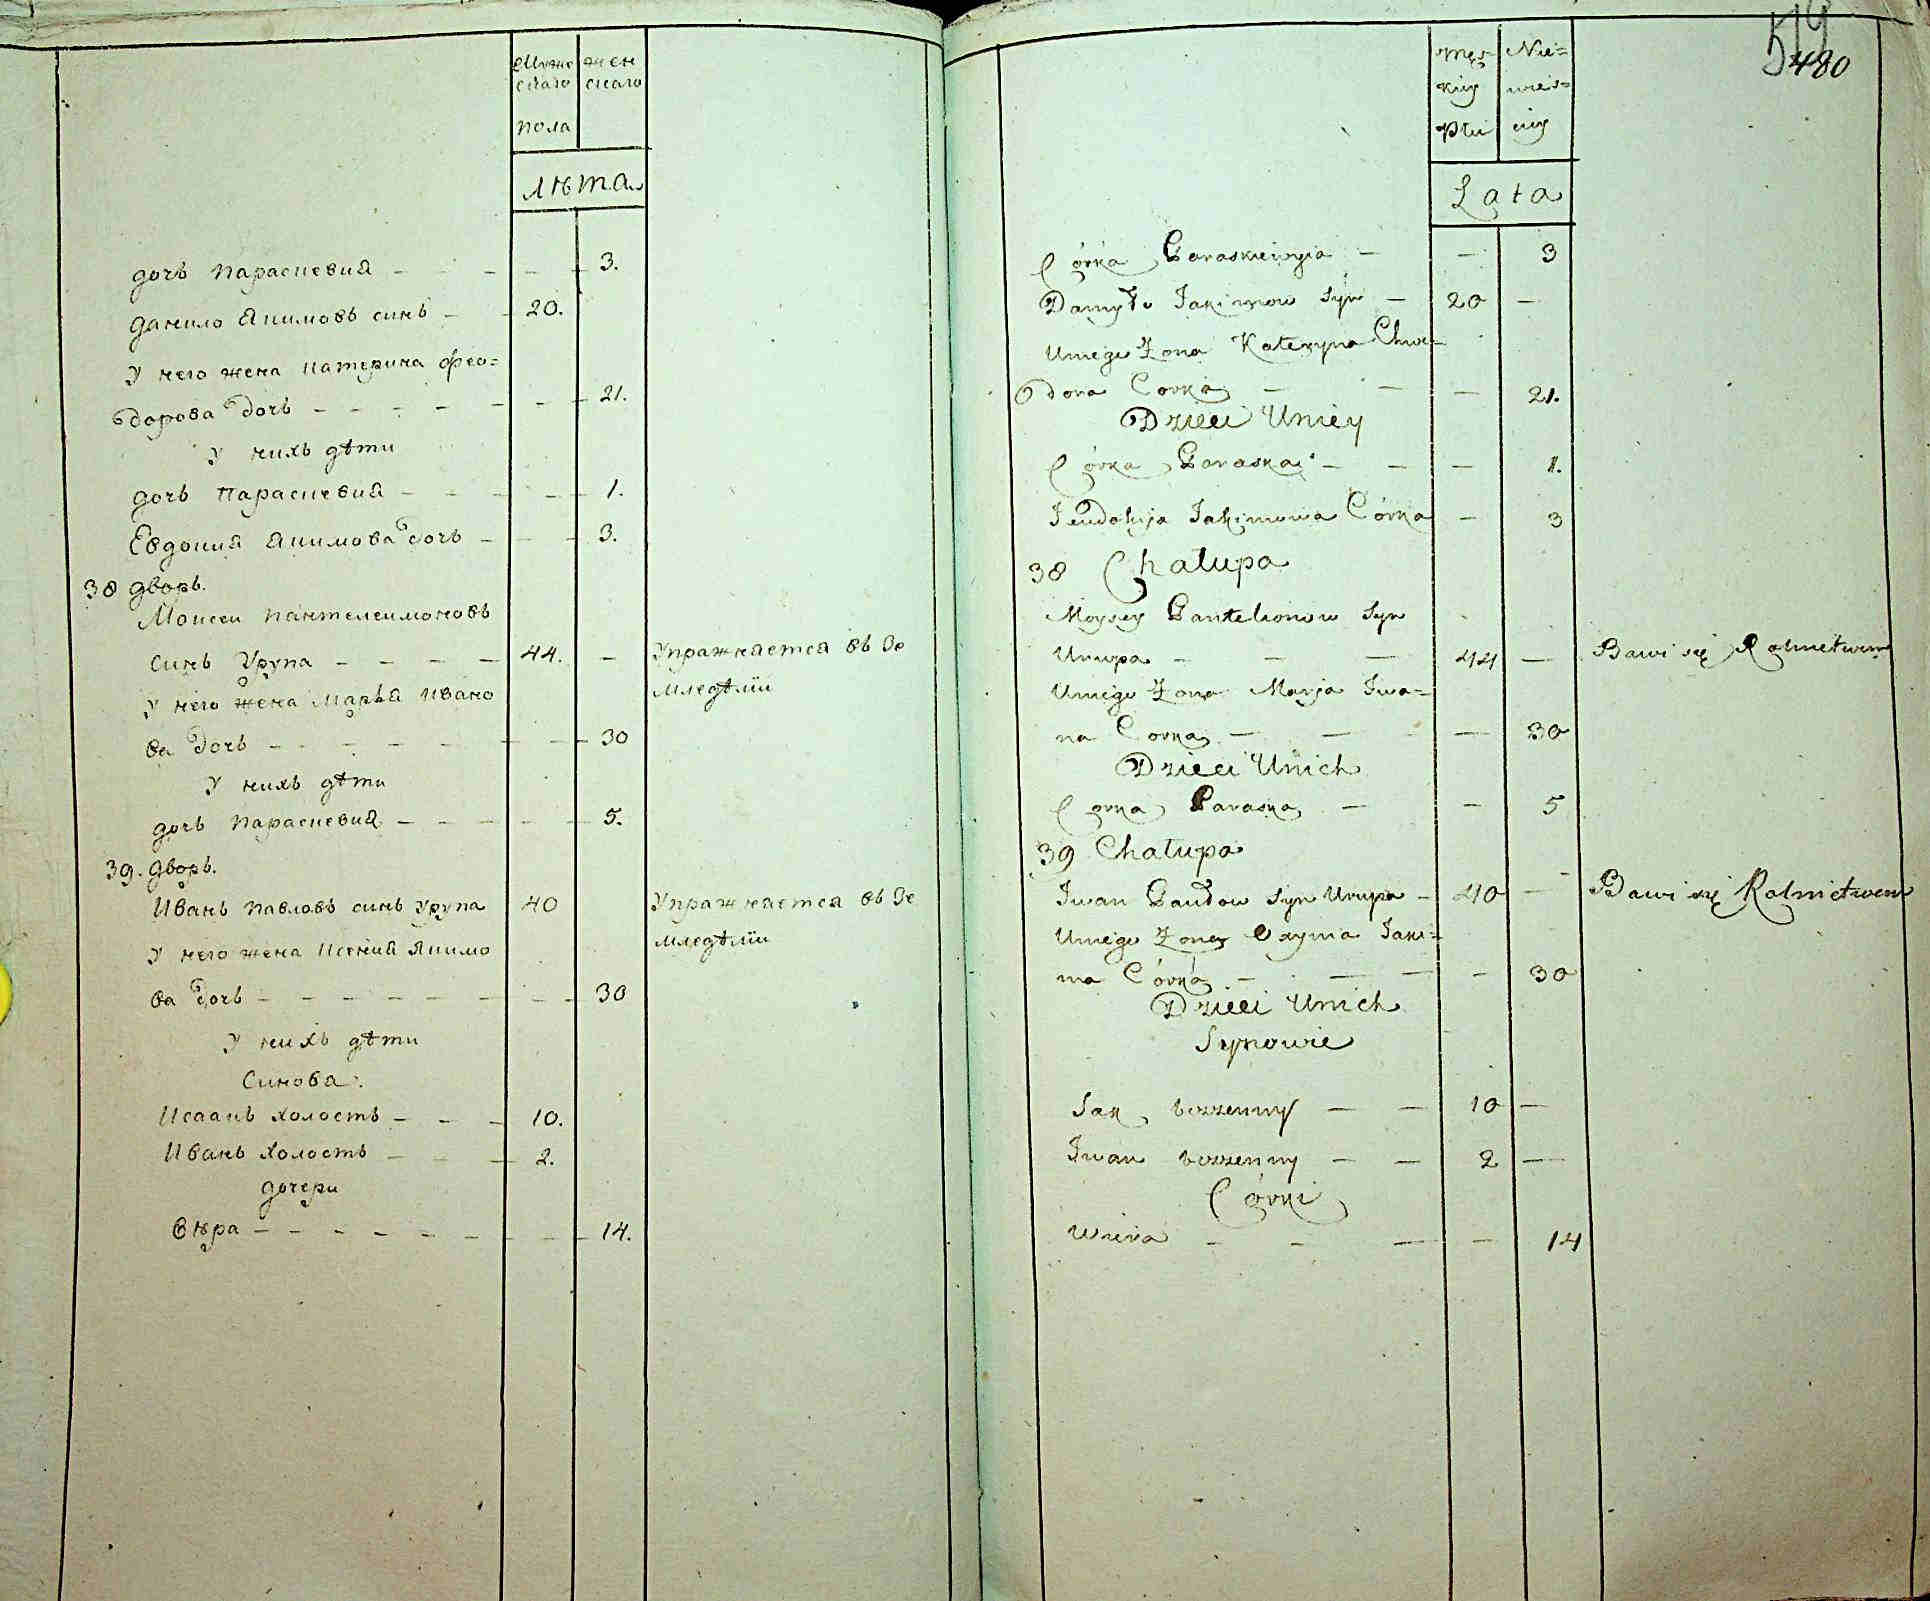 Муже жен
скаго скаго
пола
лѣта
дочь Параскевия — — — — — 3.
данило Якимовъ синъ — — 20.
У него жена Катерина Фео=
дорова дочь — — — — — — — 21.
У нихъ дѣти
дочь Параскевия — — — — — 1.
Евдокия Якимова дочь — — — 3.
38 дворъ.
Моисей Пантелеимоновъ
синъ Урупа — — — — 44. — Упражняется въ Зе
У него жена Марья Ивано мледѣлїи
ва дочь — — — — — — — — 30
У нихъ дѣти
дочь Параскевия — — — — — — 5.
39. дворъ.
Иванъ Павловъ синъ Урупа 40 Упражняется въ Зе
У него жена Ксения Якимо мледѣлїи
ва дочь — — — — — — — — 30
У нихъ дѣти
Синова.
Исаакъ холостъ — — — 10.
Иванъ холостъ — — — 2.
дочери
Вѣра — — — — — — — — — 14.
519
480
Męs= Nie=
kiey wies=
Płci ciey
Lata
Córka Paraskiewyia — — 3
Danyło Jakimow Syn — 20 —
Uniego Żona Kateryna Chwe=
dora Corka — — — 21.
Dzieci Uniey
Córka Paraska — — — 1.
Jeudokija Jakimowa Córka — 3
38 Chałupa
Moysey Pantelionow Syn
Urupa — — — 44 — Bawi się Rolnictwem
Uniego Żona Marja Iwa=
na Corka — — — — 30
Dzieci Unich
Corka Paraska — — 5
39 Chałupa
Iwan Pawłow Syn Urupa — 40 — Bawi się Rolnictwem
Uniego Żona Oxynia Jaki=
ma Córka — — — — 30
Dzieci Unich
Synowie
Sak bezzenny — — 10 —
Iwan bezzenny — — 2 —
Córki
Wiera — — — — 14